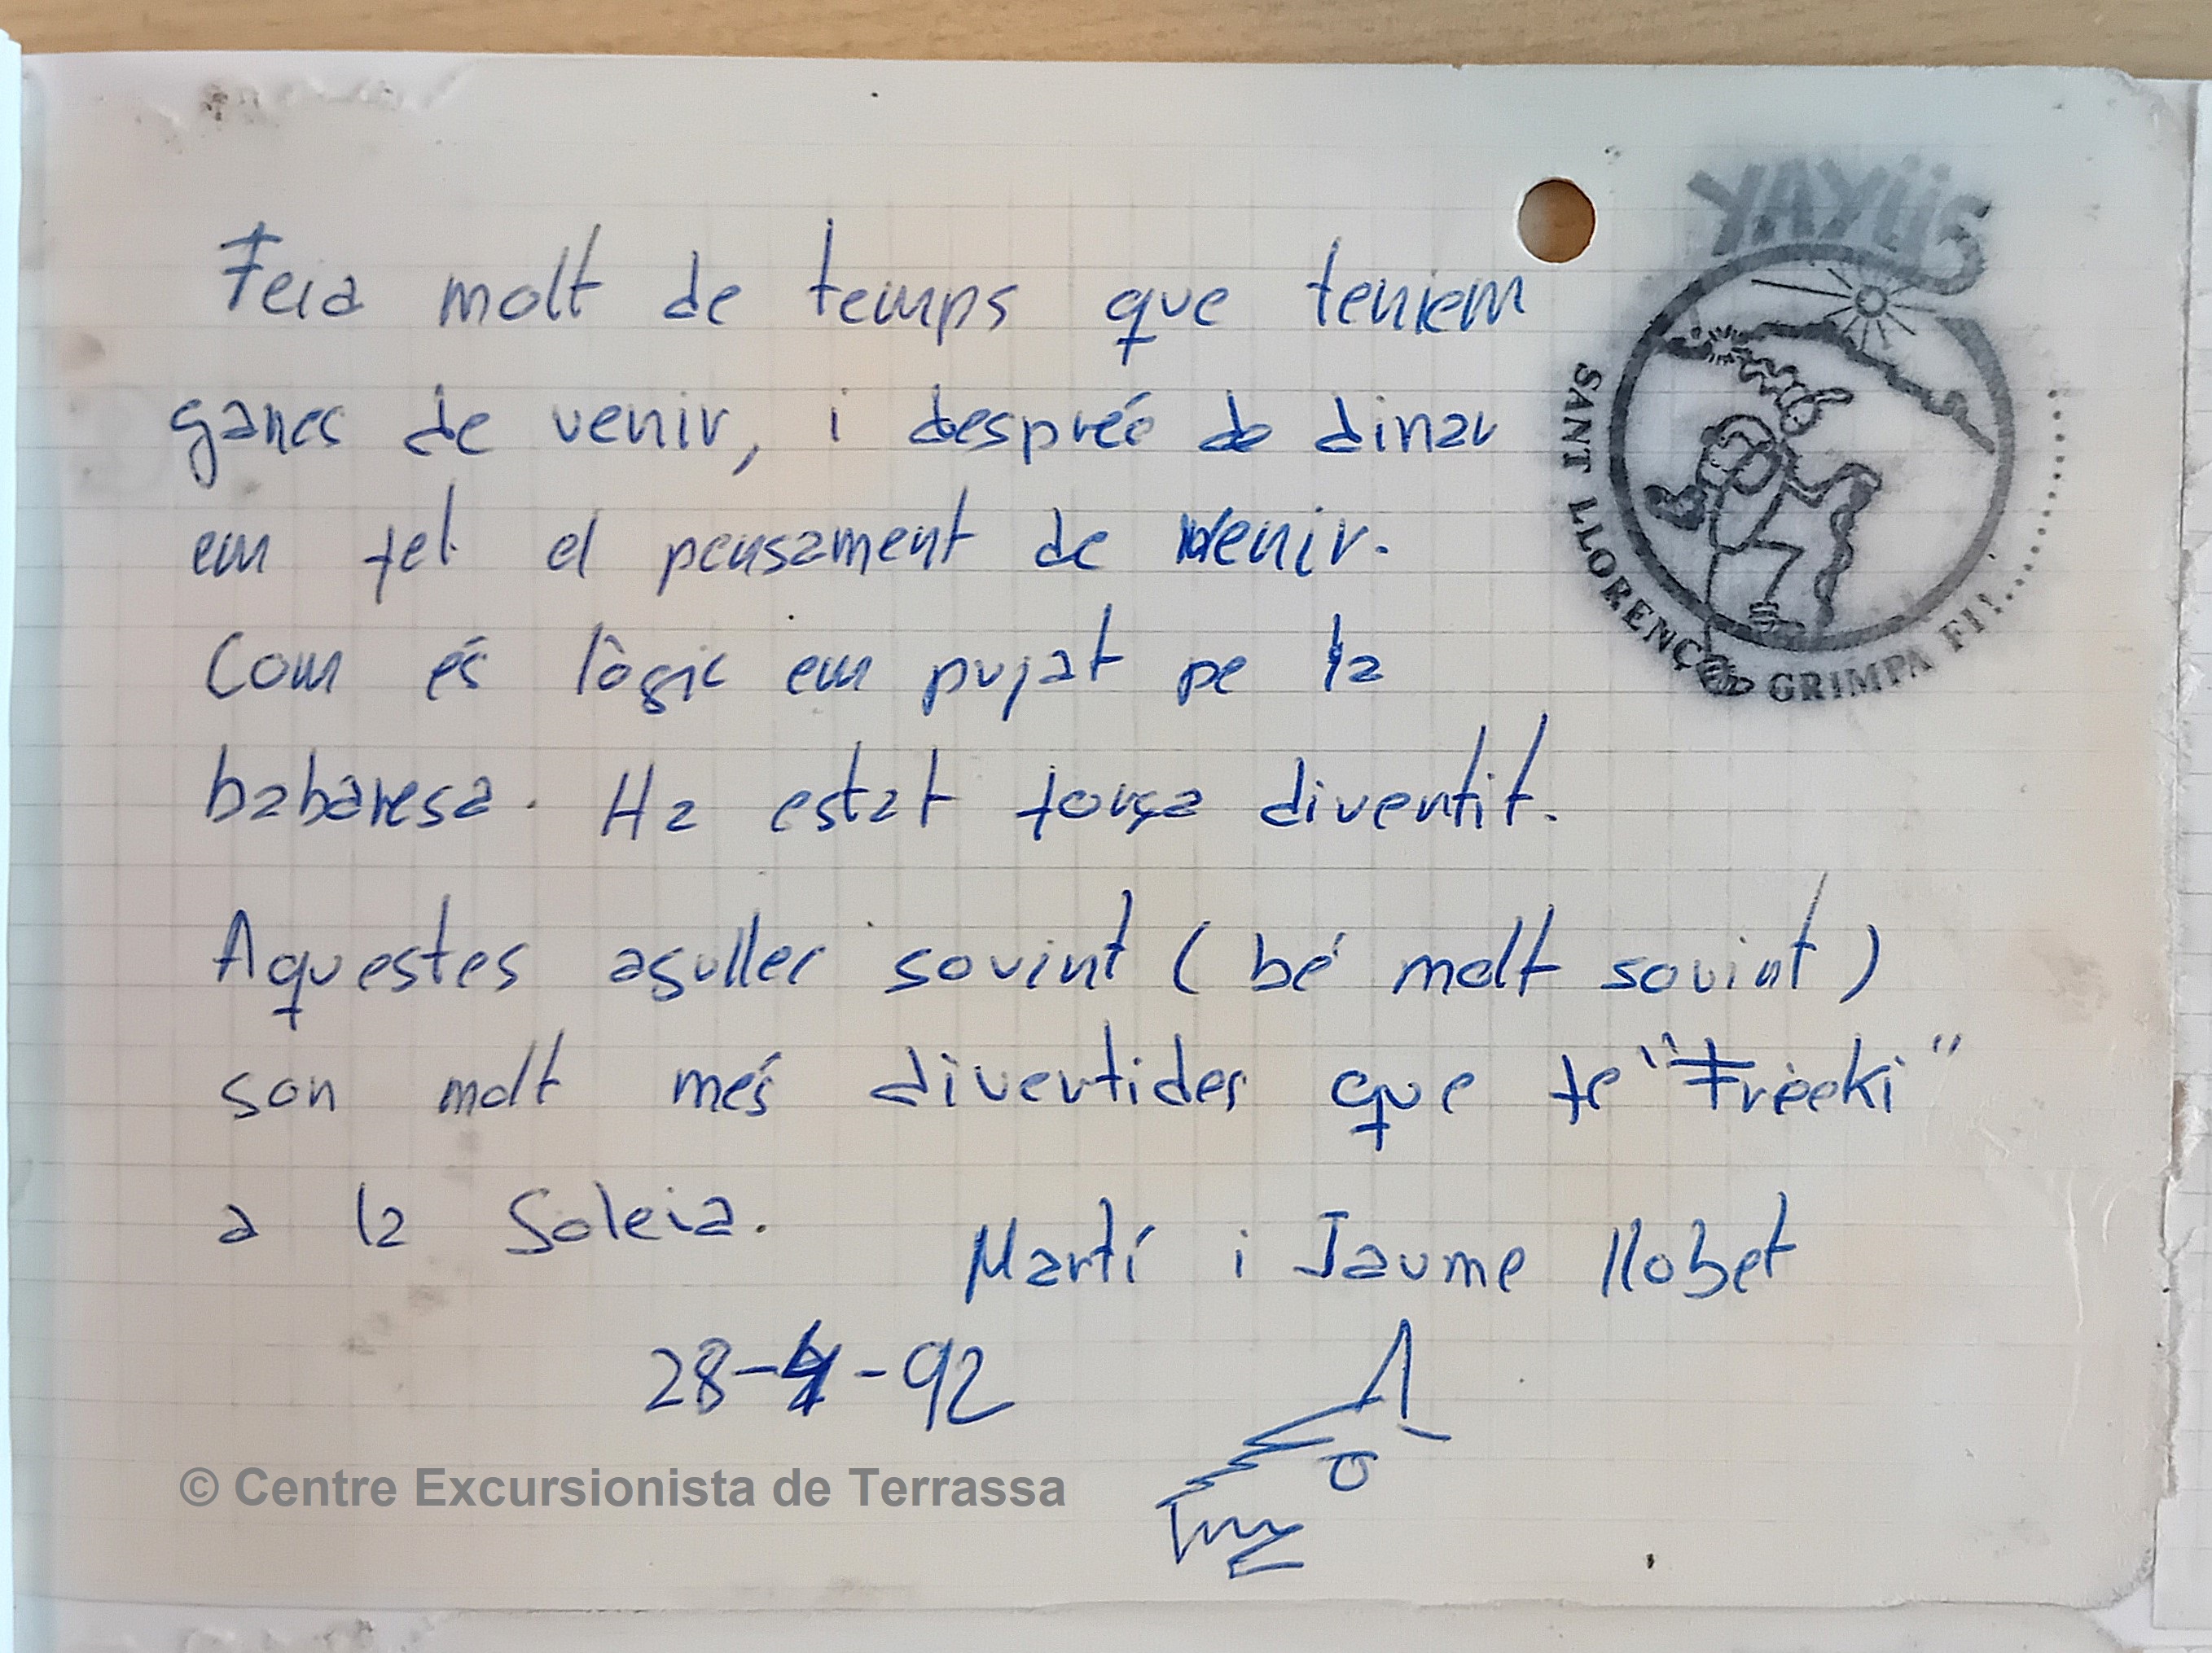 YAYÜS
SANT LLORENÇ GRIMPA FI!!......
Feia molt de temps que teniem
ganes de venir, i desprès de dinar
em fet el pensament de venir.
Com és lògic em pujat pe la
babaresa. Ha estat força divertit.
Aquestes agulles sovint (bé molt sovint)
son molt més divertides que fe "Freeki"
a la Soleia.
Martí i Jaume Llobet
28-4-92
© Centre Excursionista de Terrassa